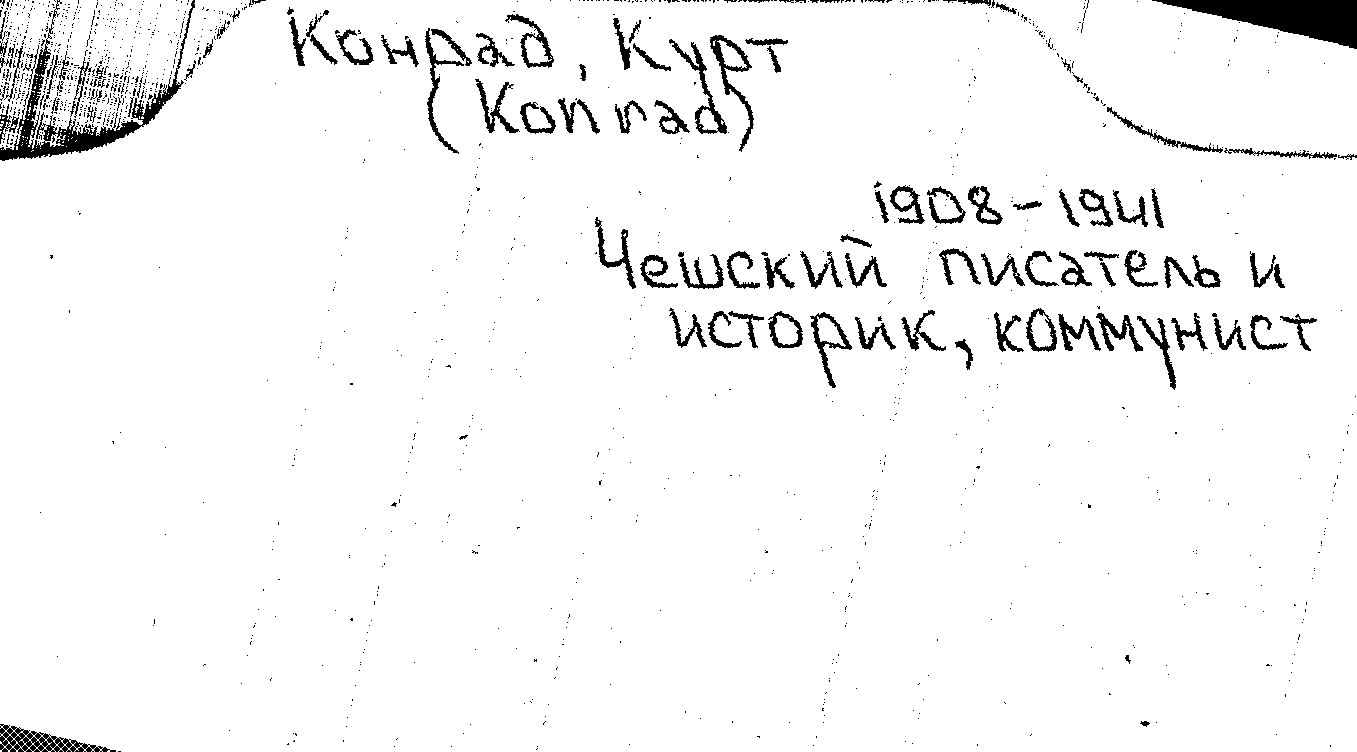 Конрад, Курт
(Konrad)
1908-1941
Чешский писатель и
историк, коммунист